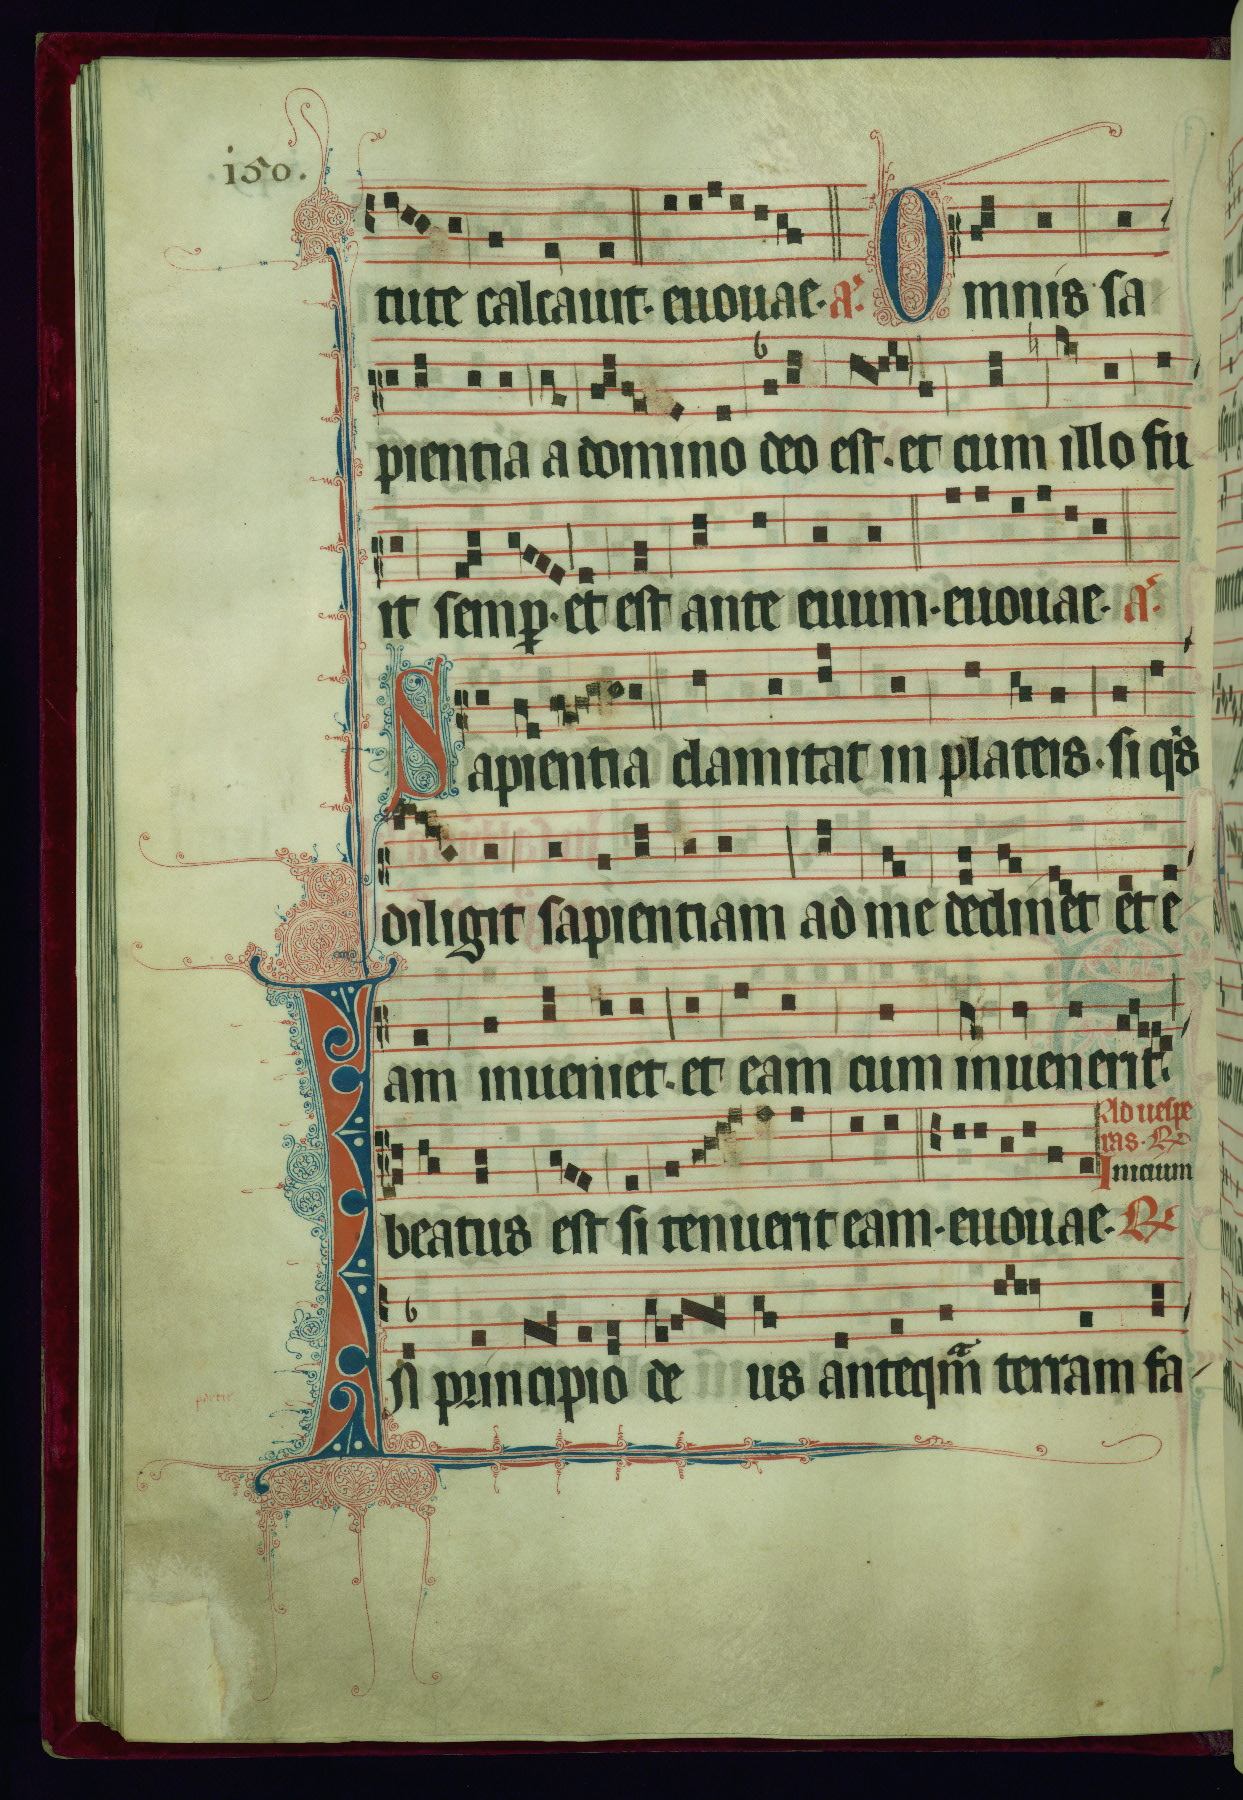 .150.
tute calcauit. euouae. a. Omnis sa
pientia a domino deo est. et cum illo fu
it semp. et est ante euum. euouae. a.
Sapientia clamitat in plateis. si qs
diligit sapientiam ad me declinet et e
am inueniet. et eam cum inuenerit.
Ad uespe
ras. R
Inicium
beatus est si tenuerit eam. euouae. R
In principio deus anteqm terram fa